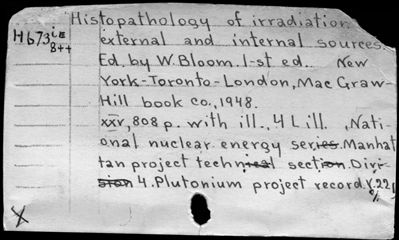 Histopathology of irradiation
H673 iɛ external and internal sources.
B++ Ed. by W. Bloom. 1-st ed.. New
York-Toronto-London, Mac Graw-
Hill book co., 1948.
xxv, 808 p. with ill., 4 L ill. , Nati-
onal nuclear energy series. Manhat
tan project technical section. Divi
sion 4. Plutonium project record. V.22
X